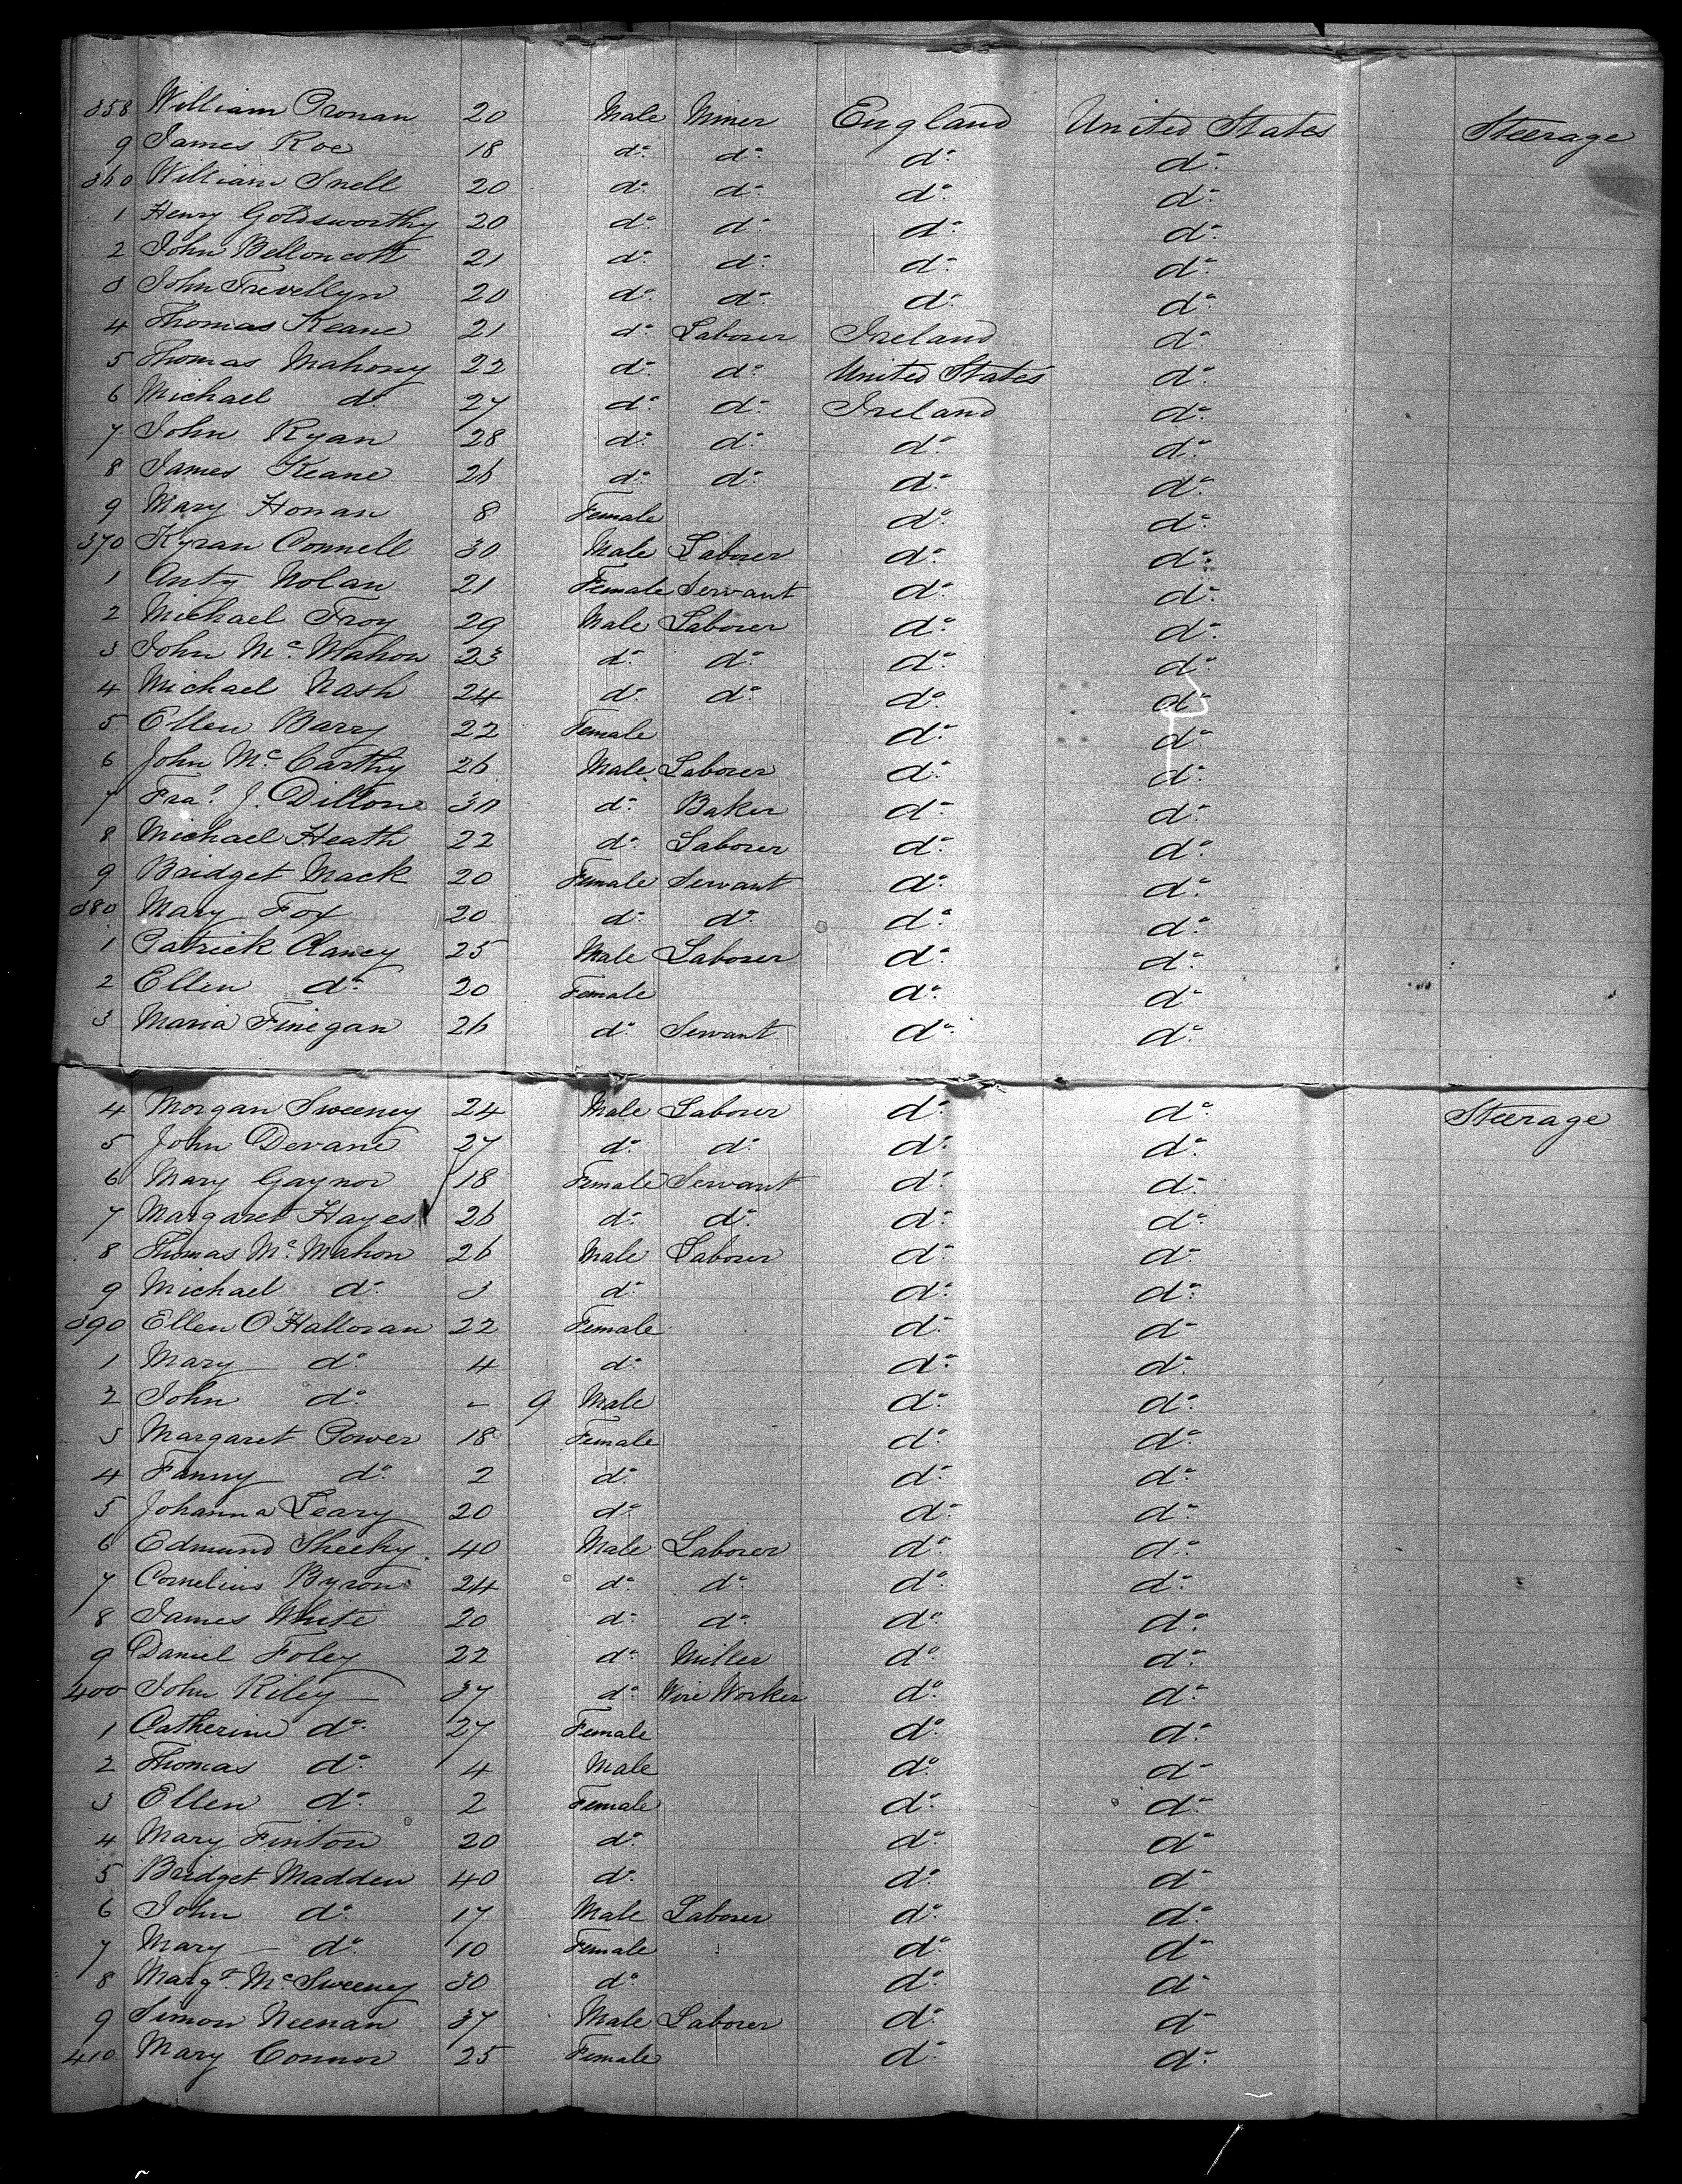 358 William Cronan 20 Male Miner England United States Steerage
9 James Roe 18 do. do. do. do.
360 William Snell 20 do. do. do. do.
1 Henry Goldsworthy 20 do. do. do. do.
2 John Belloncott 21 do. do. do. do.
3 John Trevellyn 20 do. do. do. do.
4 Thomas Keane 21 do. Laborer Ireland do.
5 Thomas Mahony 22 do. do. United States do.
6 Michael do. 27 do. do. Ireland do.
7 John Ryan 28 do. do. do. do.
8 James Keane 26 do. do. do. do.
9 Mary Honan 8 Female do. do.
370 Kyran Connell 30 Male Laborer do. do.
1 Anty Nolan 21 Female Servant do. do.
2 Michael Troy 29 Male Laborer do. do.
3 John McMahon 23 do. do. do. do.
4 Michael Nash 24 do. do. do. do.
5 Ellen Barry 22 Female do. do.
6 John McCarthy 26 Male Laborer do. do.
7 Fras. J. Dillon 30 do. Baker do. do.
8 Michael Heath 22 do. Laborer do. do.
9 Bridget Mack 20 Female Servant do. do.
380 Mary Fox 20 do. do. do. do.
1 Patrick Clancy 25 Male Laborer do. do.
2 Ellen do. 20 Female do. do.
3 Maria Finegan 26 do. Servant do. do.
4 Morgan Sweeney 24 Male Laborer do. do. Steerage
5 John Devane 27 do. do. do. do.
6 Mary Gaynor 18 Female Servant do. do.
7 Margaret Hayes 26 do. do. do. do.
8 Thomas McMahon 26 Male Laborer do. do.
9 Michael do. 3 do. do. do.
390 Ellen O'Halloran 22 Female do. do.
1 Mary do. 4 do. do. do.
2 John do. - 9 Male do. do.
3 Margaret Power 18 Female do. do.
4 Fanny do. 2 do. do. do.
5 Johanna Leary 20 do. do. do.
6 Edmund Sheehy 40 Male Laborer do. do.
7 Cornelius Byron 24 do. do. do. do.
8 James White 20 do. do. do. do.
9 Daniel Foley 22 do. Miller do. do.
400 John Riley 37 do. Wire Worker do. do.
1 Catherine do. 27 Female do. do.
2 Thomas do. 4 Male do. do.
3 Ellen do. 2 Female do. do.
4 Mary Finton 20 do. do. do.
5 Bridget Madden 40 do. do. do.
6 John do. 17 Male Laborer do. do.
7 Mary do. 10 Female do. do.
8 Margt. McSweeney 30 do. do. do.
9 Simon Neenan 37 Male Laborer do. do.
410 Mary Connor 25 Female do. do.